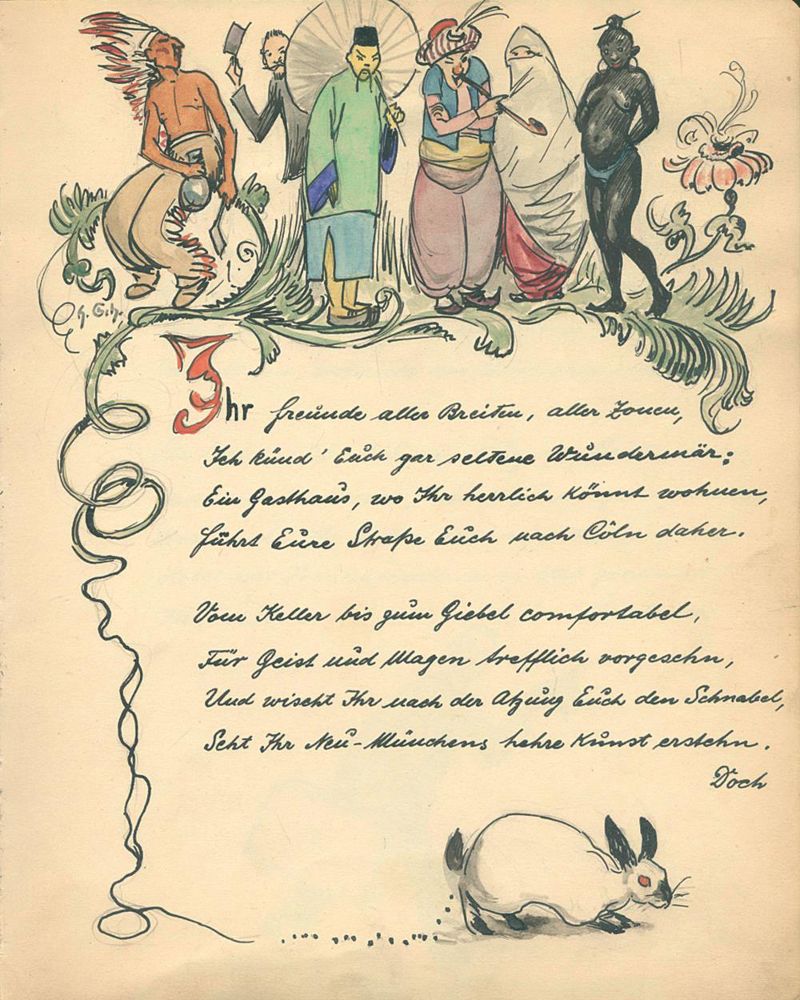 Ihr freunde aller Breiten, aller Zonen,
Ich künd' Euch gar seltene Wundermär:
Ein Gasthaus, wo Ihr herrlich könnt wohnen,
führt Eure Straße Euch nach Cöln daher.
Vom Keller bis zum Giebel comfortabel,
Für Geist und Magen trefflich vorgesehn,
Und wischt Ihr nach der Atzung Euch den Schnabel,
Seht Ihr Neu-Münchens hehre Kunst erstehn.
Doch